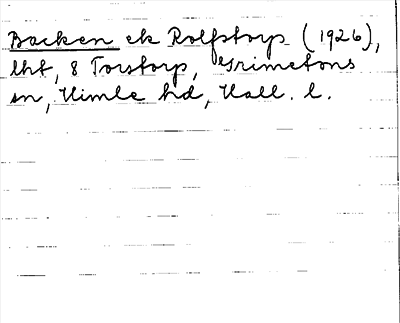 Backen ek Rolfstorp (1926),
lht, 8 Torstorp, Grimetons
sn, Himle hd, Hall. l.